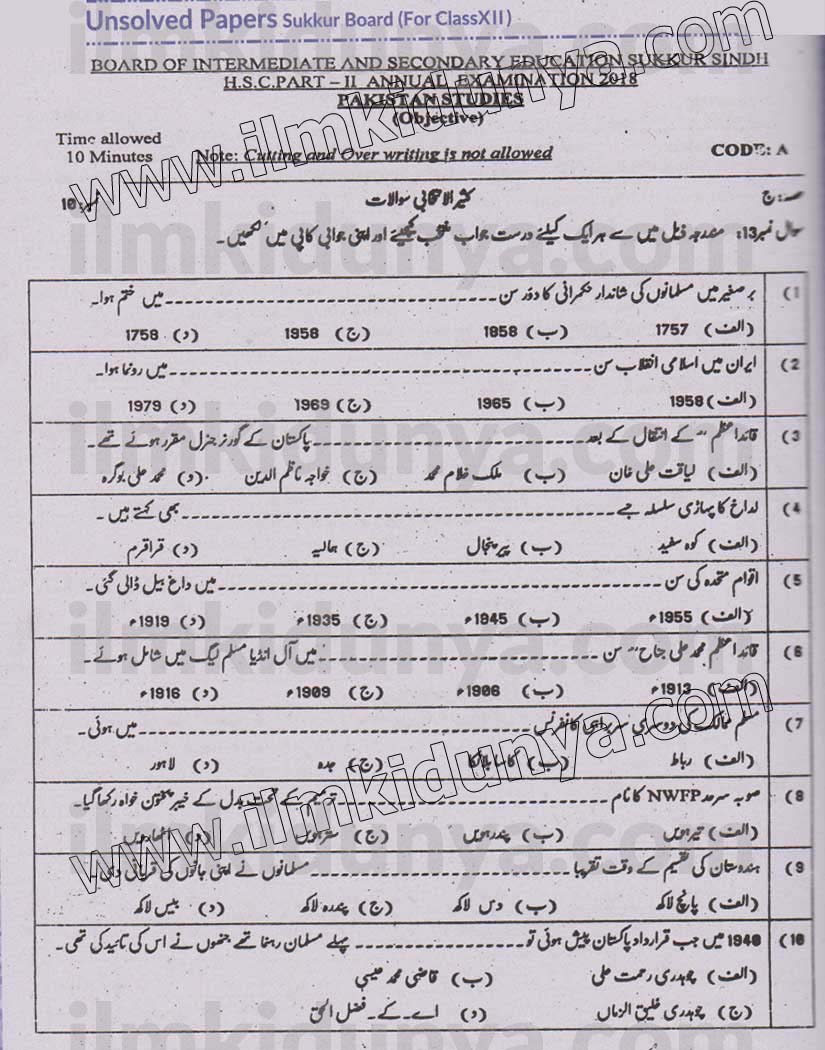 Unsolved Papers Sukkur Board (For ClassXII)
BOARD OF INTERMEDIATE AND SECONDARY EDUCATION SUKKUR SINDH
H.S.C.PART – II ANNUAL EXAMINATION 2018
PAKISTAN STUDIES
(Objective)
Time allowed
10 Minutes
Note: Cutting and Over writing is not allowed
CODE: A
حصہ: ج کثیر الانتخابی سوالات نمبر: 10
سوال نمبر13: مندرجہ ذیل میں سے ہر ایک کیلئے درست جواب منتخب کیجیئے اور اپنی جوابی کاپی میں لکھیں۔
(1 برصغیر میں مسلمانوں کی شاندار حکمرانی کا دؤر سن ــــــــ میں ختم ہوا۔
(الف) 1757 (ب) 1858 (ج) 1958 (د) 1758
(2 ایران میں اسلامی انقلاب سن ــــــــ میں رونما ہوا۔
(الف) 1958 (ب) 1965 (ج) 1969 (د) 1979
(3 قائداعظمؒ کے انتقال کے بعد ــــــــ پاکستان کے گورنر جنرل مقرر ہوئے تھے۔
(الف) لیاقت علی خان (ب) ملک غلام محمد (ج) خواجہ ناظم الدین (د) محمد علی بوگرہ
(4 لداخ کا پہاڑی سلسلہ جسے ــــــــ بھی کہتے ہیں۔
(الف) کوہ سفید (ب) پیر پنجال (ج) ہمالیہ (د) قراقرم
(5 اقوام متحدہ کی سن ــــــــ میں داغ بیل ڈالی گئی۔
(الف) 1955ء (ب) 1945ء (ج) 1935ء (د) 1919ء
(6 قائداعظم محمد علی جناحؒ سن ــــــــ میں آل انڈیا مسلم لیگ میں شامل ہوئے۔
(الف) 1913ء (ب) 1906ء (ج) 1909ء (د) 1916ء
(7 مسلم ممالک کی دوسری سربراہی کانفرنس ــــــــ میں ہوئی۔
(الف) رباط (ب) کاسابلانکا (ج) جدہ (د) لاہور
(8 صوبہ سرحد NWFP کا نام ــــــــ ترمیم کے تحت بدل کے خیبر پختون خواہ رکھا گیا۔
(الف) تیرہویں (ب) پندرہویں (ج) سترہویں (د) اٹھارہویں
(9 ہندوستان کی تقسیم کے وقت تقریبا ــــــــ مسلمانوں نے اپنی جانوں کی قربانی دی۔
(الف) پانچ لاکھ (ب) دس لاکھ (ج) پندرہ لاکھ (د) بیس لاکھ
(10 1940 میں جب قرارداد پاکستان پیش ہوئی تو ــــــــ پہلے مسلمان رہنما تھے جنھوں نے اس کی تائید کی تھی۔
(الف) چوہدری رحمت علی (ب) قاضی محمد عیسیٰ
(ج) چوہدری خلیق الزماں (د) اے۔کے۔فضل الحق
www.ilmkidunya.com
www.ilmkidunya.com
ilmkidunya.com
ilmkidunya.com
ilmkidunya.com
ilmkidunya.com
ilmkidunya.com